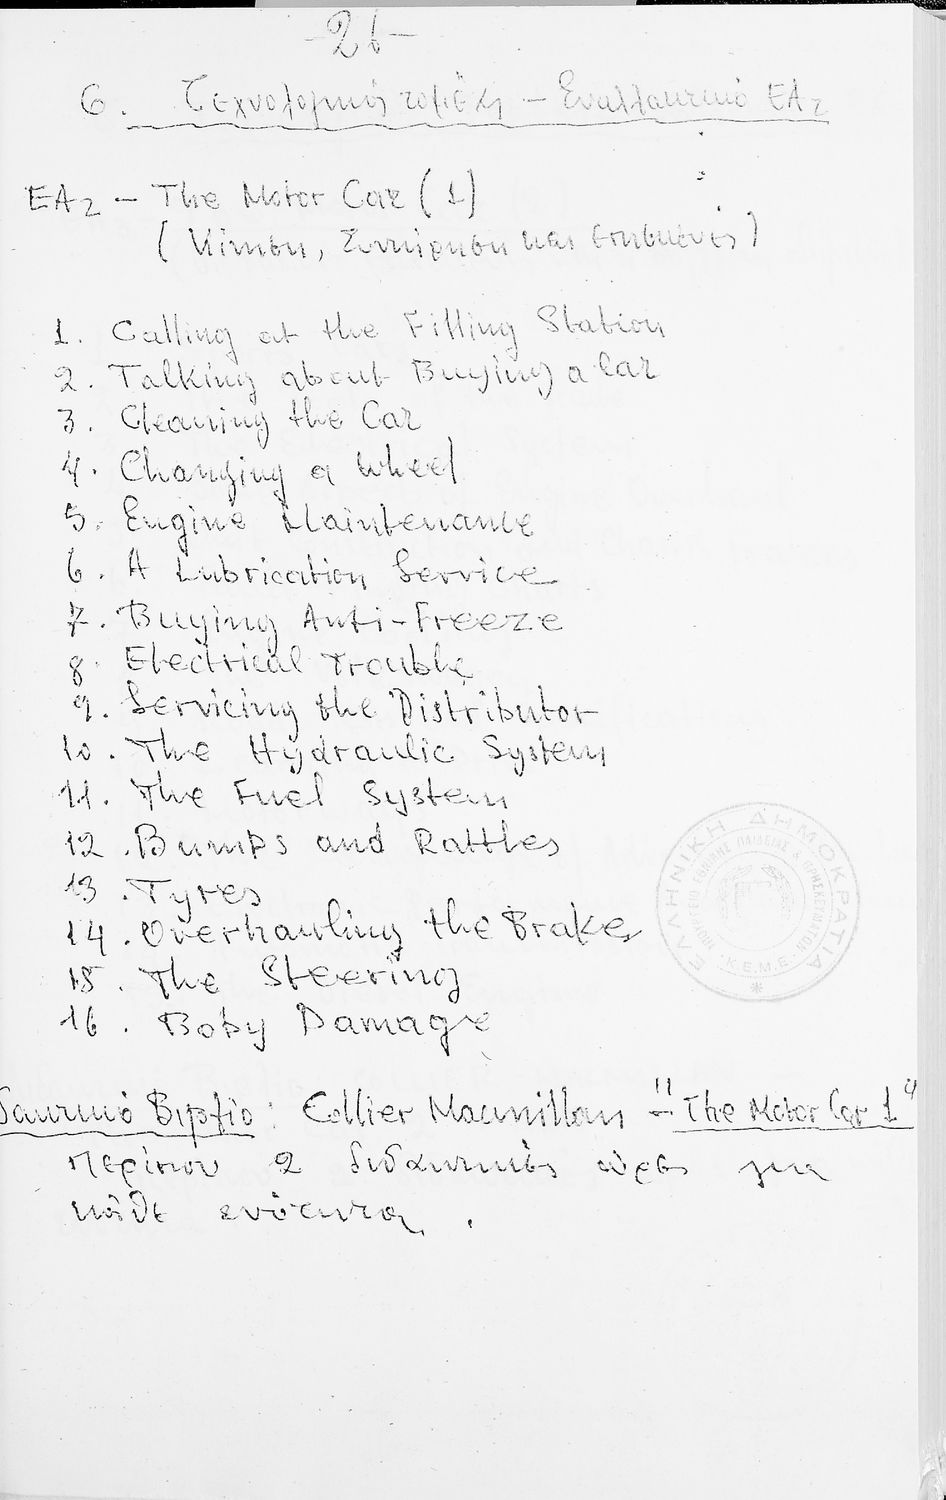 -26-
6. Τεχνολογικός τομέας - Εναλλακτικό ΕΑ2
EA2 - The Motor Car (1)
(Κίνηση, Συντήρηση και επισκευές)
1. Calling at the Filling Station
2. Talking about Buying a Car
3. Cleaning the Car
4. Changing a Wheel
5. Engine Maintenance
6. A Lubrication Service
7. Buying Anti-Freeze
8. Electrical Trouble
9. Servicing the Distributor
10. The Hydraulic System
11. The Fuel System
12. Bumps and Rattles
13. Tyres
14. Overhauling the Brakes
15. The Steering
16. Boby Damage
ΕΛΛΗΝΙΚΗ ΔΗΜΟΚΡΑΤΙΑ
ΥΠΟΥΡΓΕΙΟ ΕΘΝΙΚΗΣ ΠΑΙΔΕΙΑΣ & ΘΡΗΣΚΕΥΜΑΤΩΝ
Κ.Ε.Μ.Ε.
δακτικό Βιβλίο: Collier Macmillan - "The Motor Car 1"
περίπου 2 διδακτικές ώρες για
κάθε ενότητα.